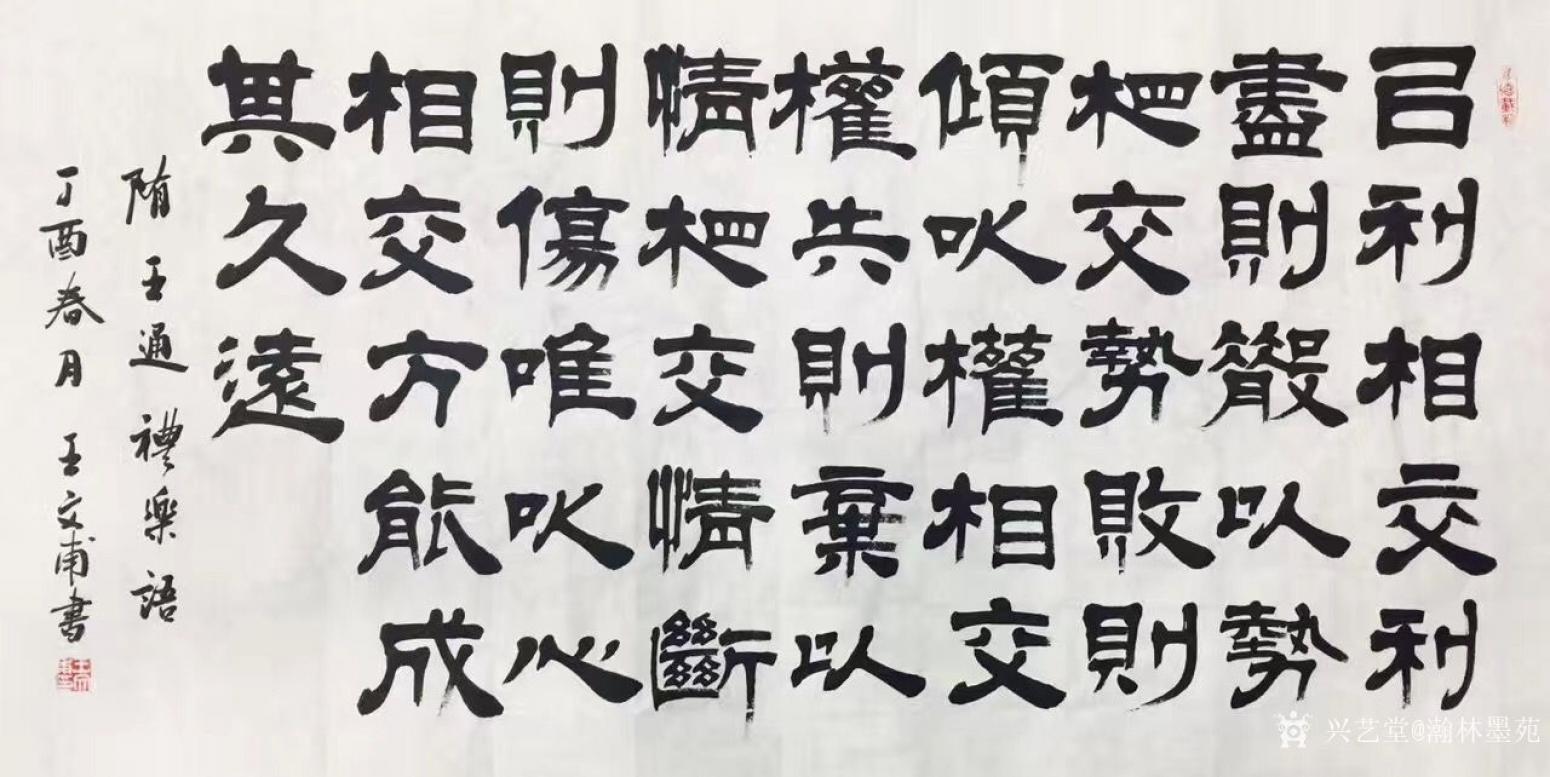 㠯利相交利
盡則散以勢
相交勢敗則
傾以權相交
權失則棄以
情相交情斷
則傷唯以心
相交方能成
其久遠
隋王通禮樂語
丁酉春月王文甫書
兴艺堂@瀚林墨苑